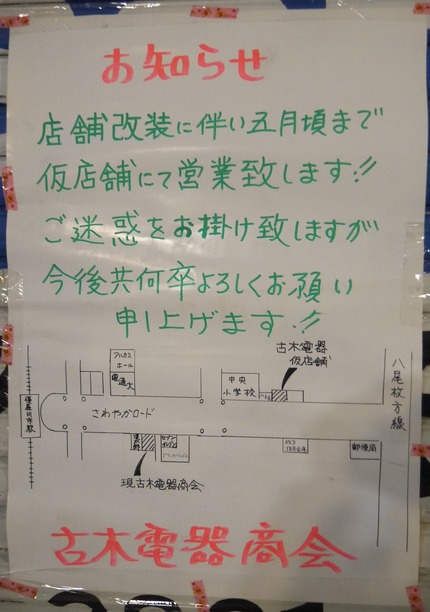 お知らせ
店舗改装に伴い五月頃まで
仮店舗にて営業致します!!
ご迷惑をお掛け致しますが
今後共何卒よろしくお願い
申し上げます!!
古木電器
仮店舗
アルカス
ホール
電通大
中央
小学校
さわやかロード
寝屋川市駅
八尾枚方線
セブン
郵便局
現古木電器商会
古木電器商会